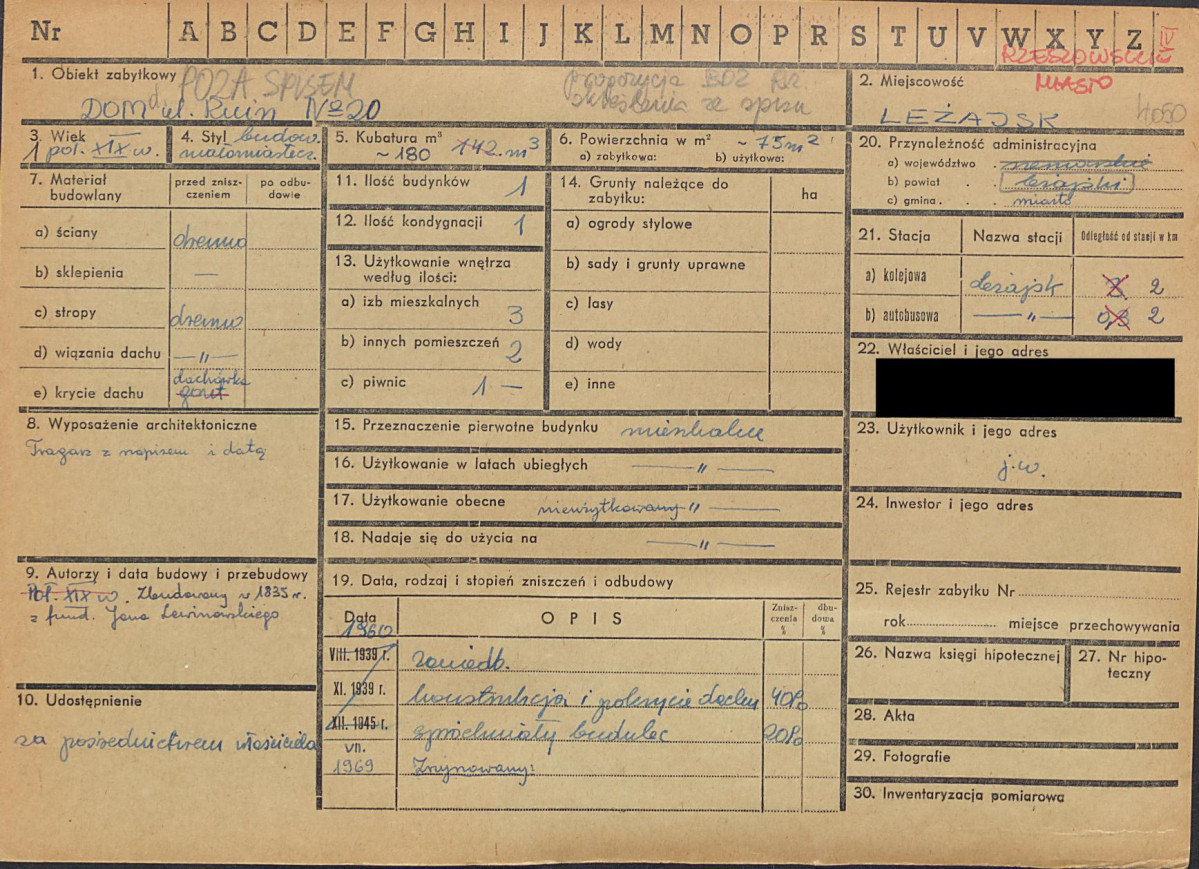 Nr A B C D E F G H I J K L M N O P R S T U V W X Y Z IV
RZESZOWSKIE
MIASTO
1. Obiekt zabytkowy POZA SPISEM
propozycja BDZ Rz.
skreślenia ze spisu
DOM ul. Ruin No 20
2. Miejscowość
LEŻAJSK 4050
3. Wiek
1 poł. XIX w.
4. Styl budow.
małomiasteczk.
5. Kubatura m³
~ 180 142 m³
6. Powierzchnia w m² ~ 75 m²
a) zabytkowa: b) użytkowa:
7. Materiał budowlany
przed zniszczeniem
po odbudowie
a) ściany drewno
b) sklepienia —
c) stropy drewno
d) wiązania dachu — " —
e) krycie dachu dachówka
gont
8. Wyposażenie architektoniczne
Tragarz z napisem i datą
9. Autorzy i data budowy i przebudowy
Poł. XIX w. Zbudowany w 1835 r.
z fund. Jana Lewinowskiego
10. Udostępnienie
za pośrednictwem właściciela
11. Ilość budynków 1
12. Ilość kondygnacji 1
13. Użytkowanie wnętrza
według ilości:
a) izb mieszkalnych 3
b) innych pomieszczeń 2
c) piwnic 1 —
14. Grunty należące do
zabytku:
ha
a) ogrody stylowe
b) sady i grunty uprawne
c) lasy
d) wody
e) inne
15. Przeznaczenie pierwotne budynku mieszkalne
16. Użytkowanie w latach ubiegłych — " —
17. Użytkowanie obecne nieużytkowany — " —
18. Nadaje się do użycia na — " —
19. Data, rodzaj i stopień zniszczeń i odbudowy
Data
OPIS
Zniszczenia %
dbudowa %
1960
VIII. 1939 r. zaniedb.
XI. 1939 r. konstrukcja i pokrycie dachu 40%
XII. 1945 r. spróchniały budulec 20%
VII.
1969 Zrujnowany:
20. Przynależność administracyjna
a) województwo . rzeszowskie
b) powiat . . leżajski
c) gmina . . . miasto
21. Stacja
Nazwa stacji
Odległość od stacji w km
a) kolejowa Leżajsk 2
b) autobusowa — " — 0,3 2
22. Właściciel i jego adres
23. Użytkownik i jego adres
j.w.
24. Inwestor i jego adres
25. Rejestr zabytku Nr
rok miejsce przechowywania
26. Nazwa księgi hipotecznej
27. Nr hipoteczny
28. Akta
29. Fotografie
30. Inwentaryzacja pomiarowa